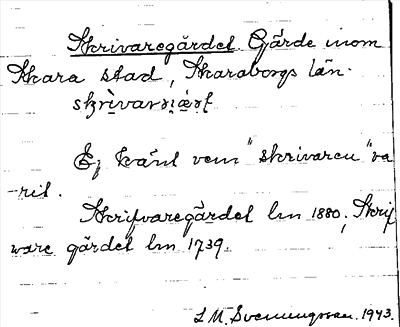 Skrivaregärdet. Gärde inom
Skara stad, Skaraborgs län.
Ej känt vem "skrivaren" va-
rit.
Skrifvaregärdet lm 1880, Skrif
ware gärdet lm 1739.
L M. Svenungsson. 1943.